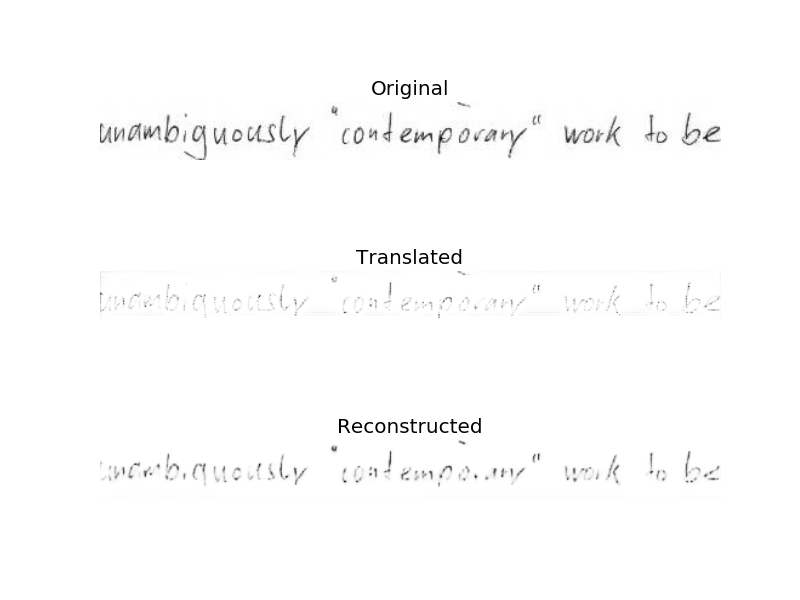 Original
unambiguously "contemporary" work to be
Translated
unambiguously "contemporary" work to be
Reconstructed
unambiguously "contemporary" work to be